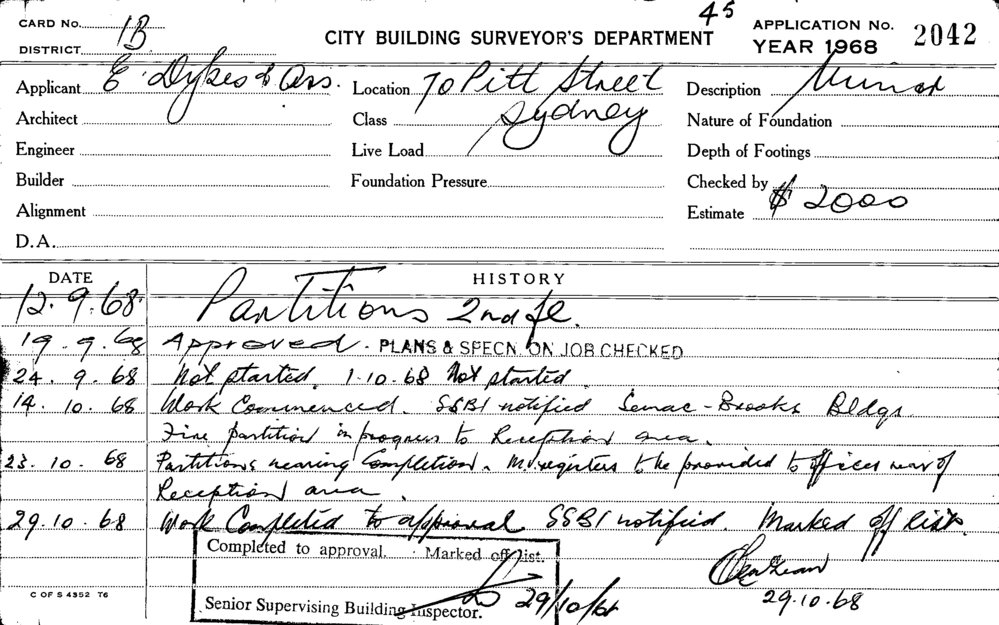 45
CARD No. 1B
CITY BUILDING SURVEYOR'S DEPARTMENT
APPLICATION No. 2042
DISTRICT
YEAR 1968
Applicant E Dykes & Ass. Location 70 Pitt Street Description
Architect Class Sydney Nature of Foundation
Engineer Live Load Depth of Footings
Builder Foundation Pressure Checked by
Alignment Estimate $ 2000
D.A.
DATE HISTORY
12.9.68. Partitions 2nd fl.
19.9.68 Approved. PLANS & SPECN. ON JOB CHECKED
24.9.68 Not started. 1.10.68 Not started.
14.10.68 Work Commenced. SSBI notified Bldgs
partition in progress to Reception area.
23.10.68 Partitions nearing Completion. registers to be provided to offices rear of
Reception area.
29.10.68 Work Completed to approval SSBI notified. Marked off list.
Completed to approval. Marked off list.
29/10/68
Senior Supervising Building Inspector.
29.10.68
C OF S 4352 T6